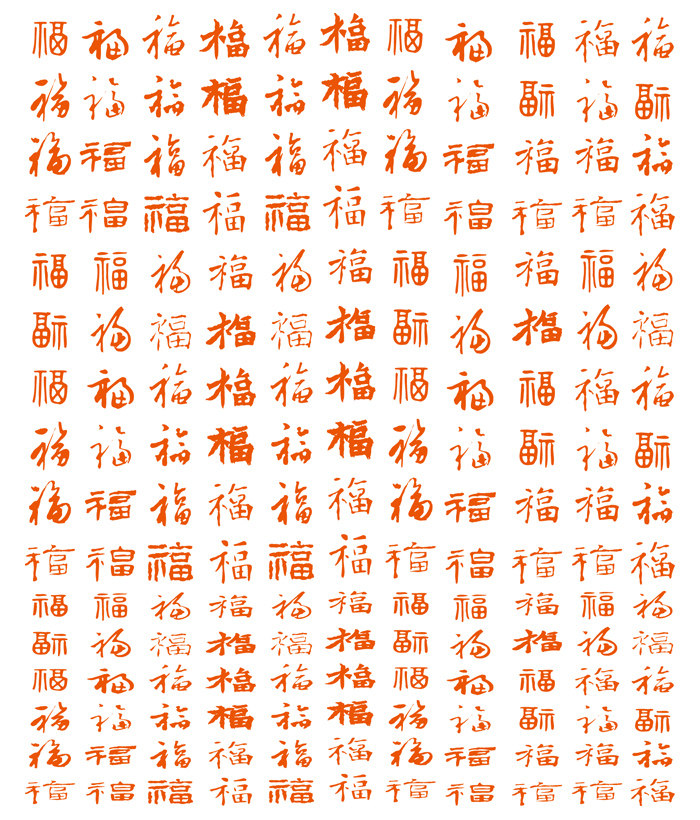 福福福福福福福福福福福
福福福福福福福福福福福
福福福福福福福福福福福
福福福福福福福福福福福
福福福福福福福福福福福
福福福福福福福福福福福
福福福福福福福福福福福
福福福福福福福福福福福
福福福福福福福福福福福
福福福福福福福福福福福
福福福福福福福福福福福
福福福福福福福福福福福
福福福福福福福福福福福
福福福福福福福福福福福
福福福福福福福福福福福
福福福福福福福福福福福